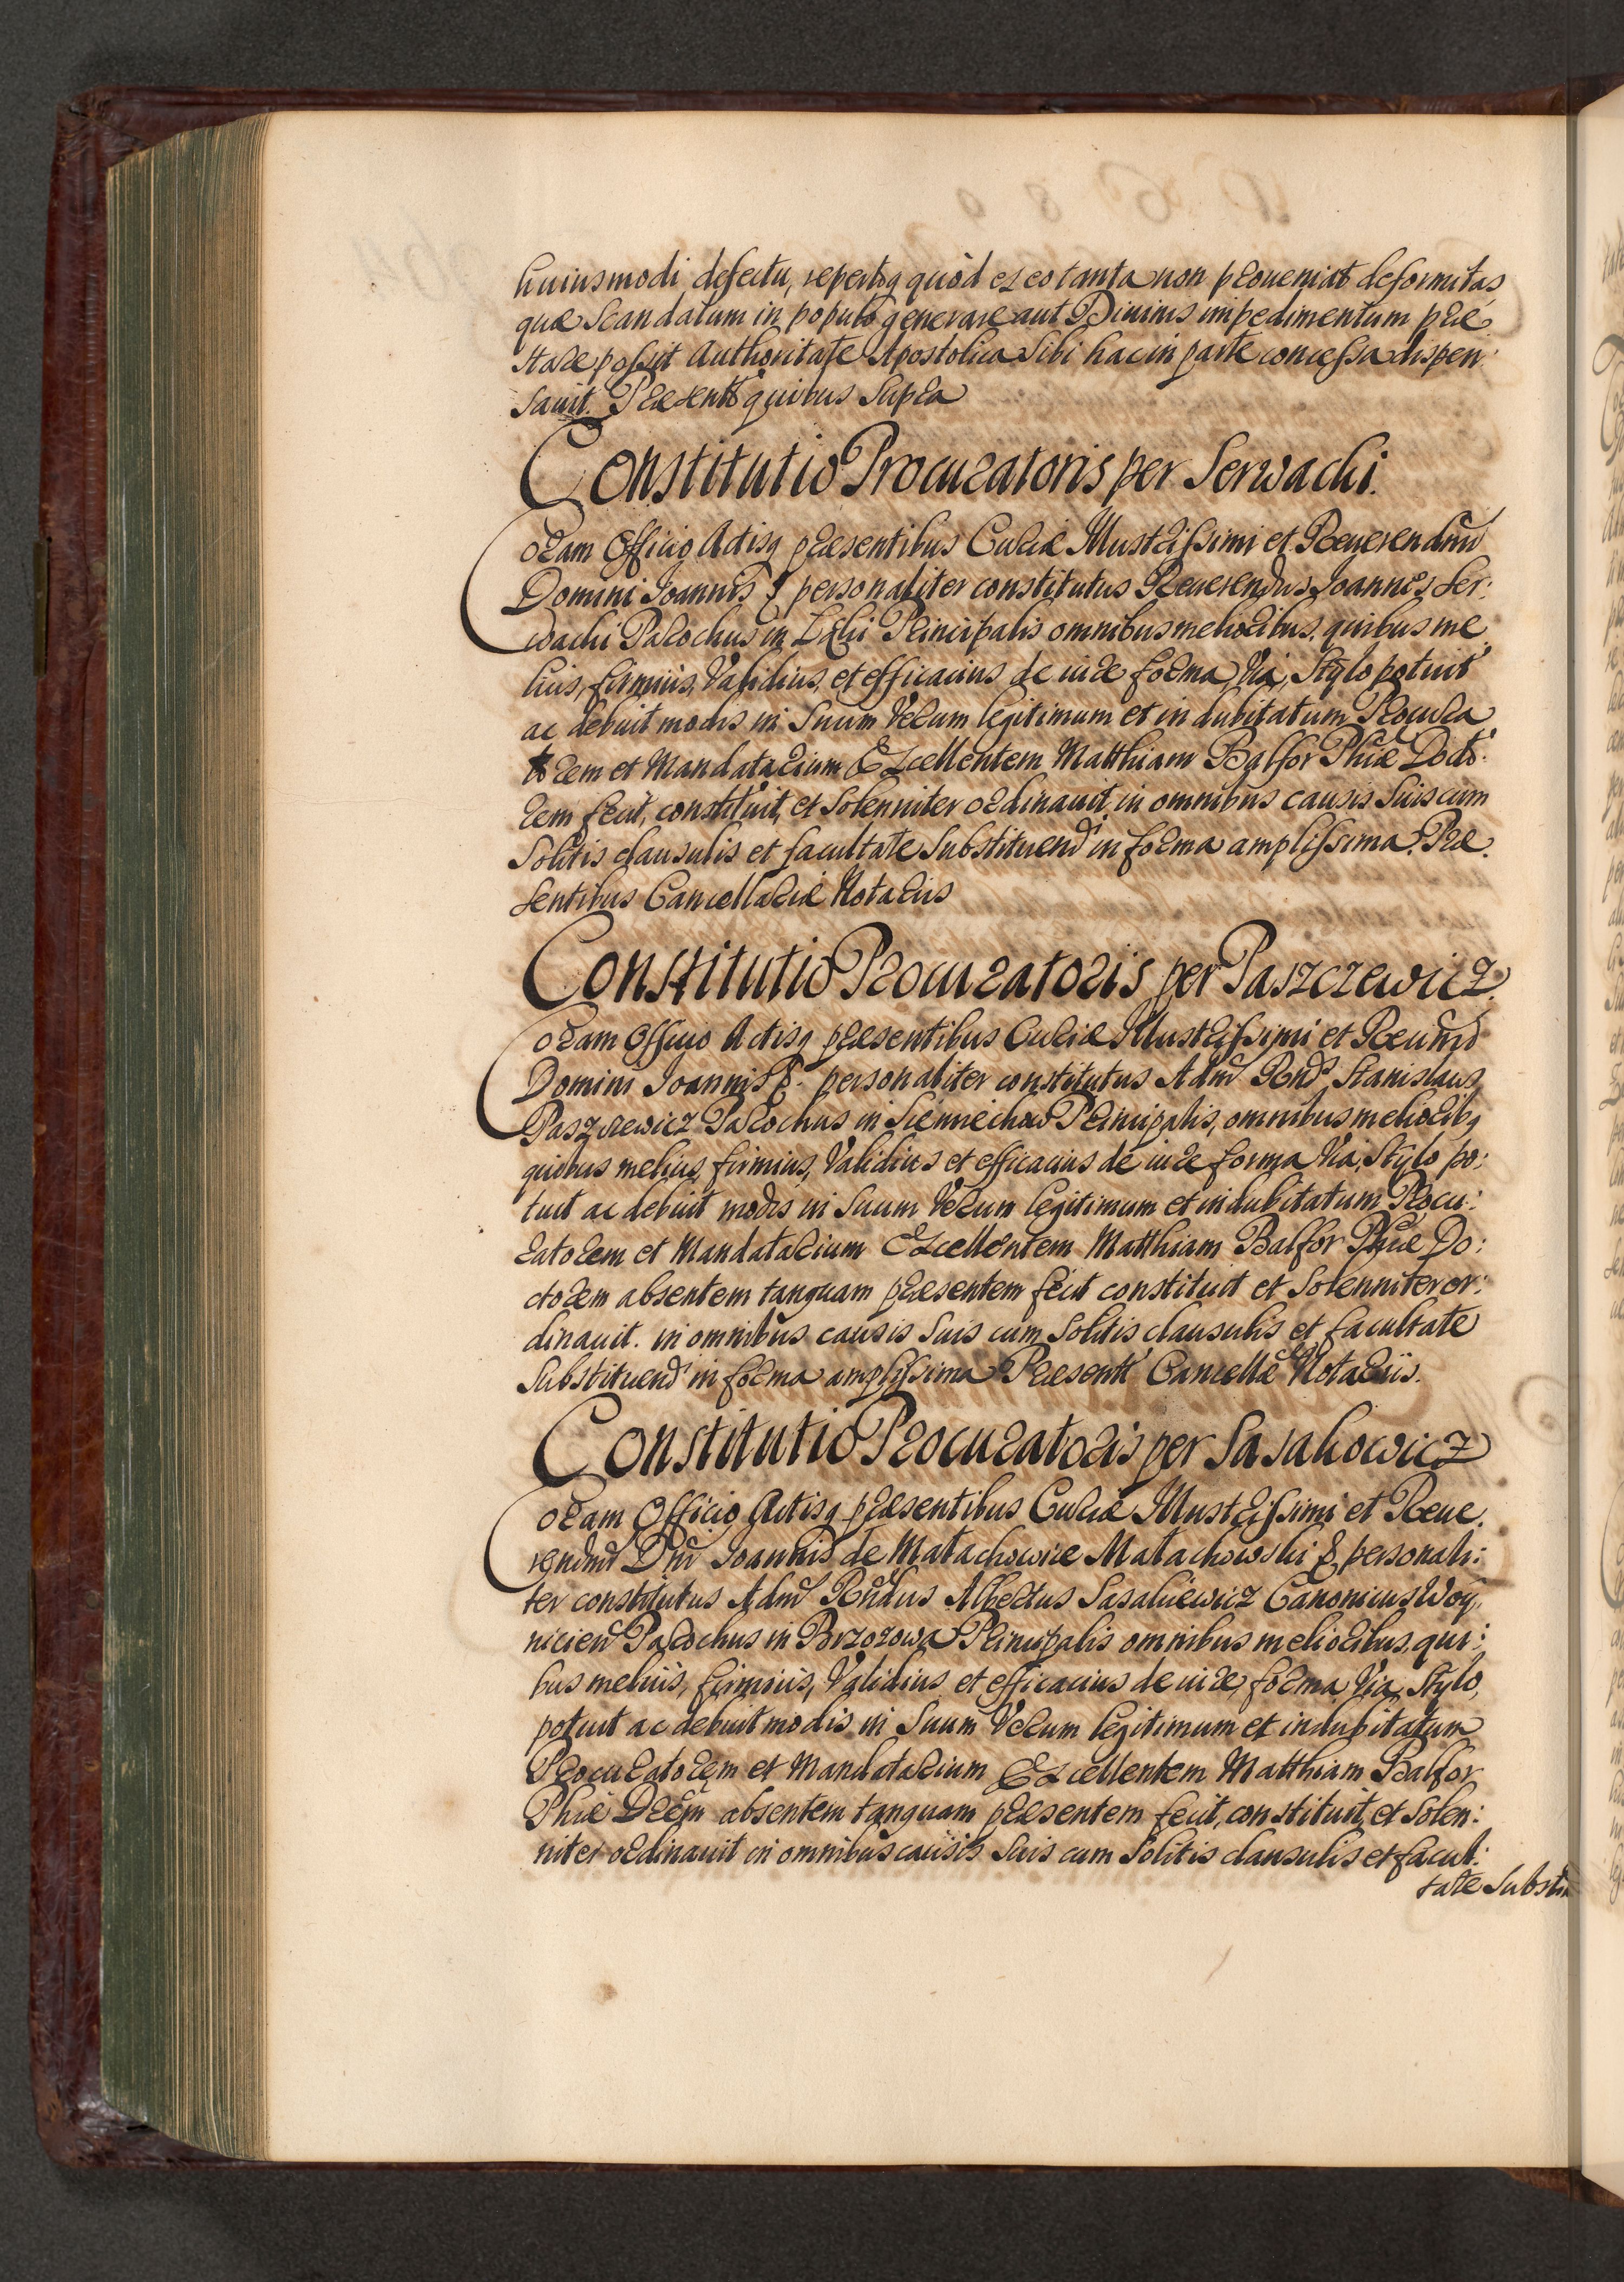 huiusmodi defectu, repertoq quòd ex eo tanta non proueniat deformitas
quæ Scandalum in populo generare aut Diuinis impedimentum præ
stare possit Authoritate Apostolica Sibi hac in parte concessa dispen:
sauit. Præsentt quibus Supra
Constitutio Procuratoris per Serwachi.
Coram Officio Actisq præsentibus Curiæ Illustrissimi et Reuerendmi
Domini Joannis & personaliter constitutus Reuerendus Joannes Ser:
wachi Parochus in Principalis omnibus melioribus, quibus me
lius, firmius, Validius, et efficacius de iure forma, Via, Stylo potuit
ac debuit modis in Suum Verum legitimum et indubitatum Procura
to rem et Mandatarium Excellentem Matthiam Balfor Phiæ Docto:
rem fecit, constituit, et Solenniter ordinauit, in omnibus causis Suis cum
Solitis clausulis et facultate Substituendi in forma amplissima. Præ.
sentibus Cancellariæ Notariis
Constitutio Procuratoris per Paszczewicz.
Coram Officio Actisq præsentibus Curiæ Illustrissimi et Reudmi
Domini Joannis &. personaliter constitutus Admd Rnds Stanislaus
Paszczewicz Parochus in Siemiechow Principalis, omnibus melioribq
quibus melius, firmius, Validius et efficacius de iure forma Via, Stylo po:
tuit ac debuit modis in Suum Verum legitimum et indubitatum Procu:
ratorem et Mandatarium Excellentem Matthiam Balfor Phiæ Do:
ctorem absentem tanquam præsentem fecit constituit et Solenniter or:
dinauit. in omnibus causis Suis cum Solitis clausulis et facultate
Substituend in forma amplissima Præsentt Cancellæ Notariis.
Constitutio Procuratoris per Sasakowicz
Coram Officio Actisq præsentibus Curiæ Illustrissimi et Reue.
rendmi Dni Joannis de Matachowice Matachowski & personali:
ter constitutus Admd Rndus Albertus Sasakiewicz Canonicus Woy,
nicien Parochus in Brzozowa Principalis omnibus melioribus, qui:
bus melius, firmius, Validius et efficacius de iure, forma Via, Stylo,
potuit ac debuit modis in Suum Verum legitimum et indubitatum
Procuratorem et Mandatarium Excellentem Matthiam Balfor
Phiæ Drem absentem tanquam præsentem fecit, constituit, et Solen:
niter ordinauit in omnibus causis Suis cum Solitis clausulis et facul:
tate Substi